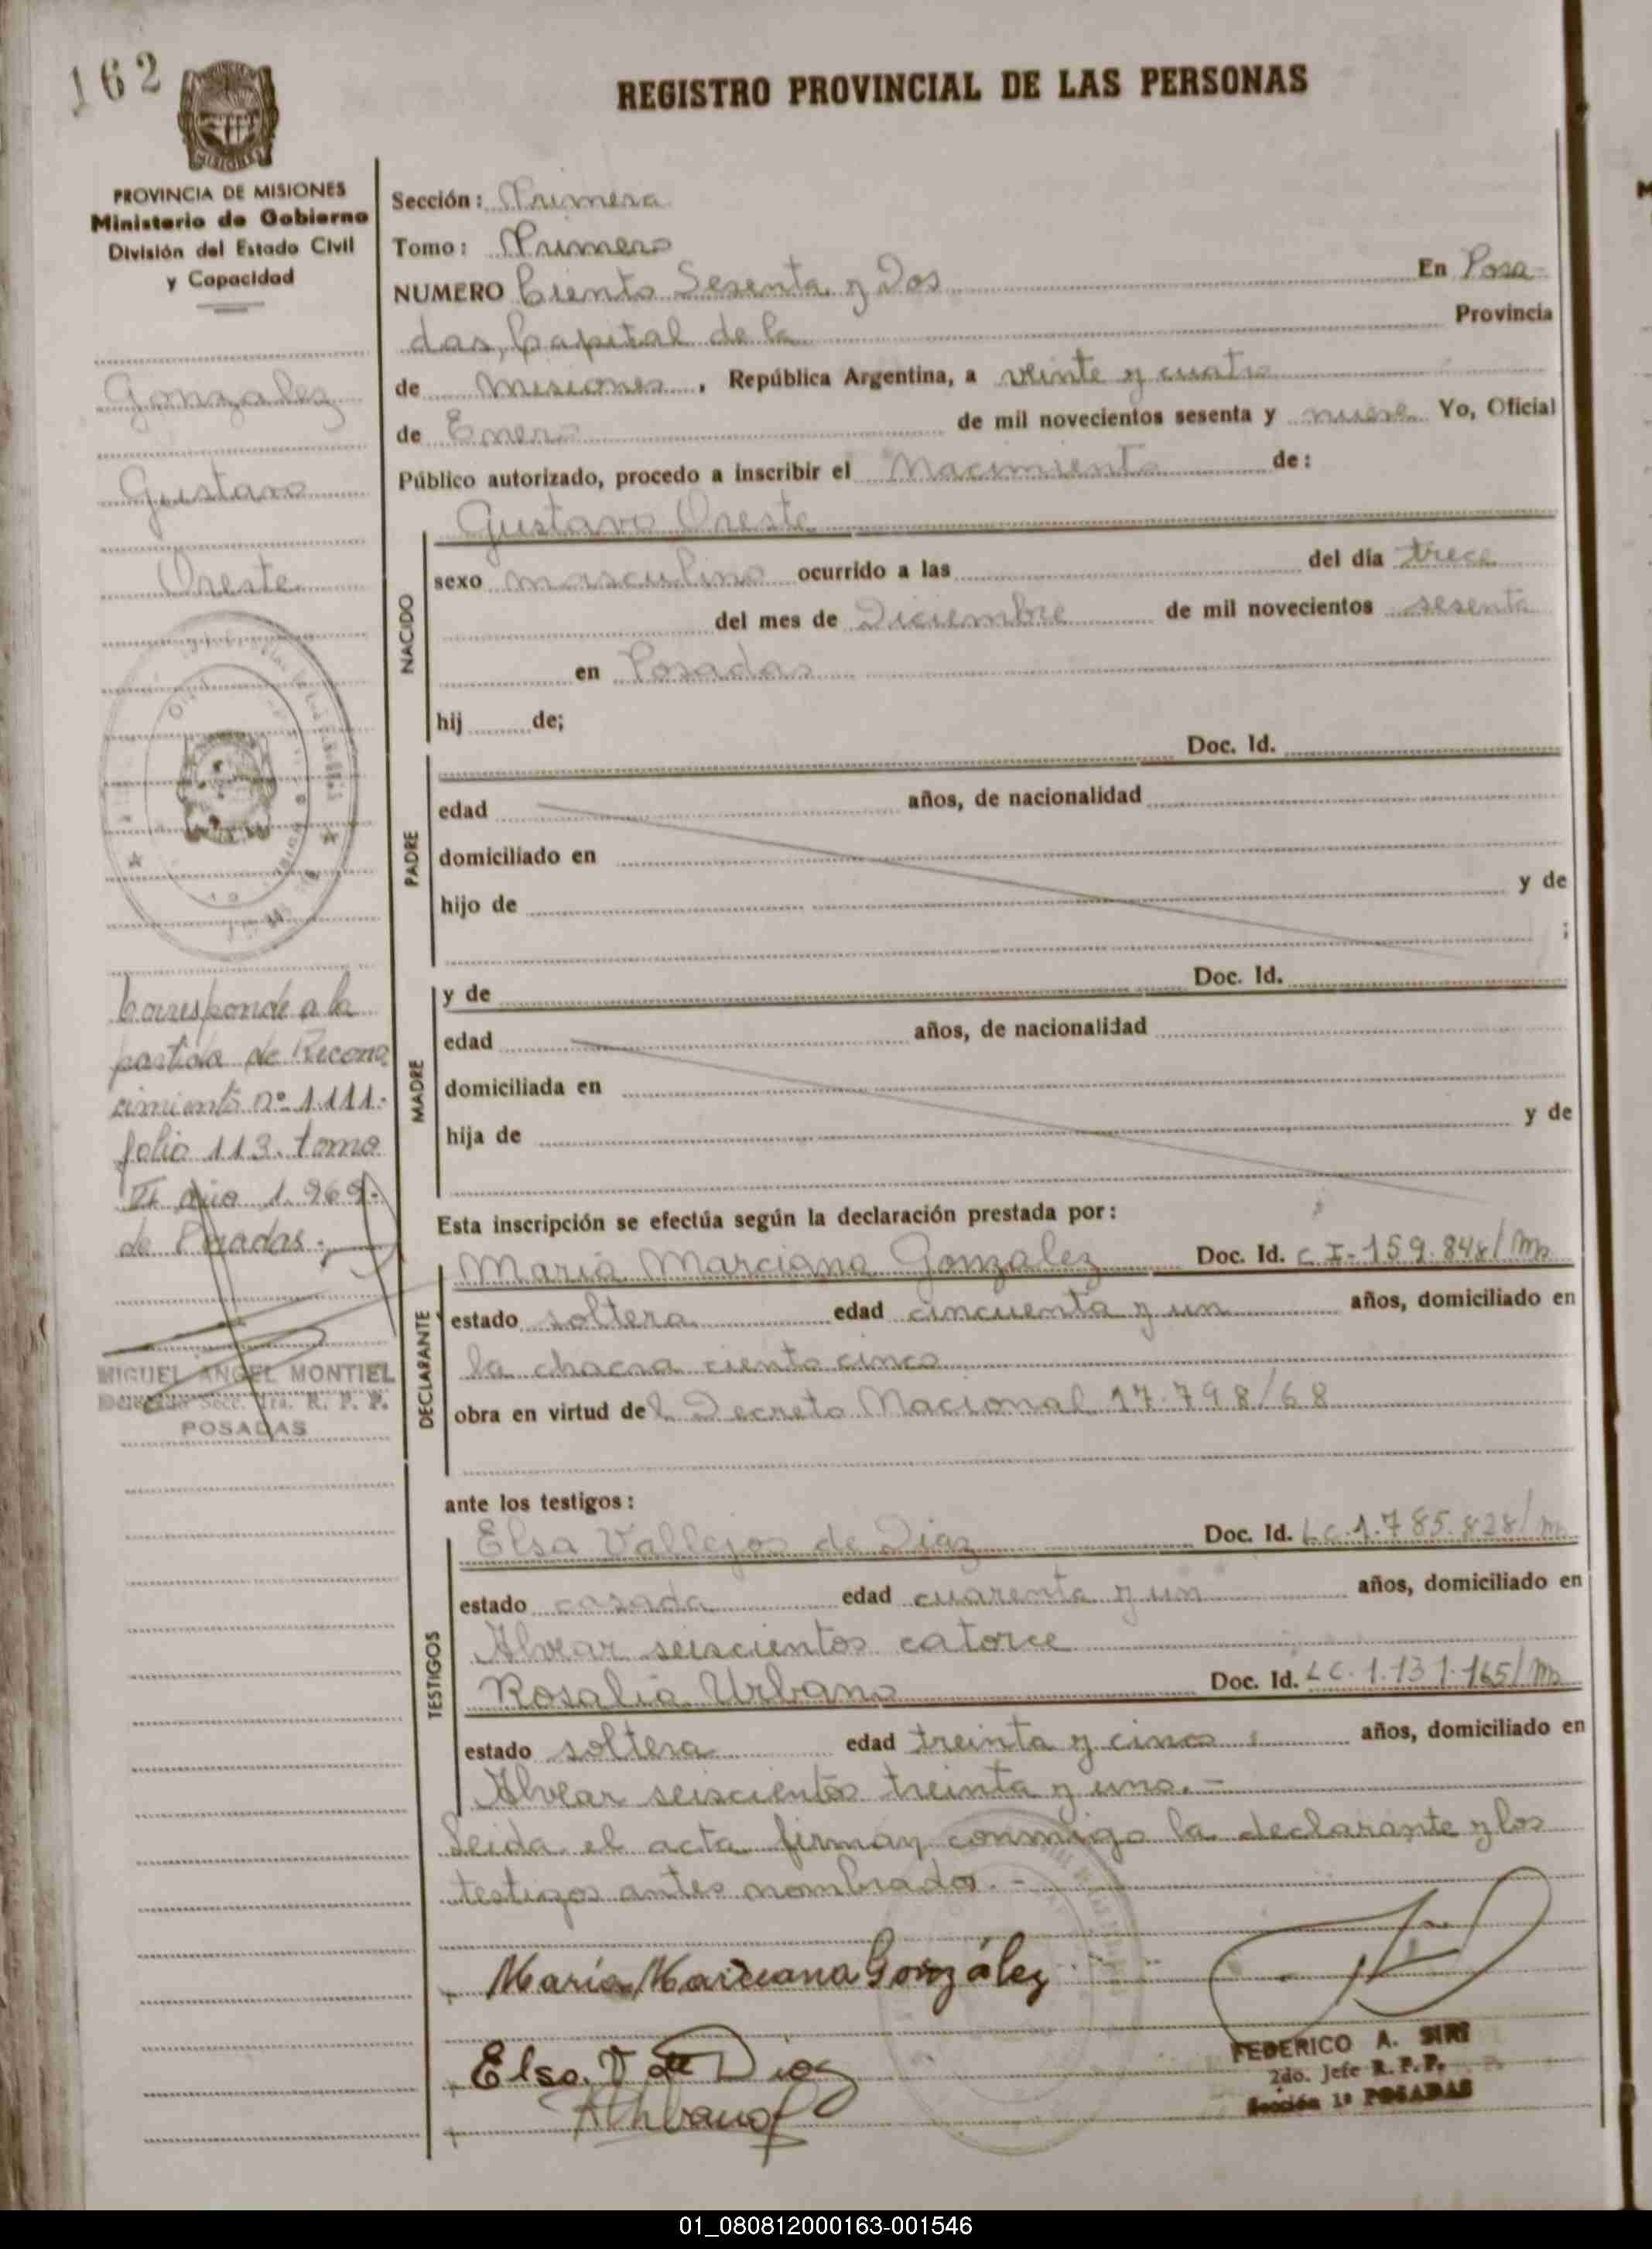 162
REGISTRO PROVINCIAL DE LAS PERSONAS
MISIONES
PROVINCIA DE MISIONES
Ministerio de Gobierno
División del Estado Civil
y Capacidad
Gonzalez
Gustavo
Oreste
Corresponde a la
partida de Recono
cimiento nº 1.111.
folio 113. tomo
II año 1.969.
de Posadas.
MIGUEL ANGEL MONTIEL
Secc. 1ra. R. P. P.
POSADAS
Sección: Primera
Tomo: Primero
NUMERO Ciento Sesenta y Dos En Posa-
das, Capital de la Provincia
de Misiones, República Argentina, a veinte y cuatro
de Enero de mil novecientos sesenta y nueve Yo, Oficial
Público autorizado, procedo a inscribir el Nacimiento de:
NACIDO
Gustavo Oreste
sexo masculino ocurrido a las del día trece
del mes de Diciembre de mil novecientos sesenta
en Posadas
hij de;
PADRE
Doc. Id.
edad años, de nacionalidad
domiciliado en
hijo de y de
;
MADRE
y de Doc. Id.
edad años, de nacionalidad
domiciliada en
hija de y de
Esta inscripción se efectúa según la declaración prestada por:
DECLARANTE
Maria Marciana Gonzalez Doc. Id. C I-159.848/Ms
estado soltera edad cincuenta y un años, domiciliado en
la chacra ciento cinco
obra en virtud del Decreto Nacional 17.798/68
ante los testigos:
TESTIGOS
Elsa Vallejos de Diaz Doc. Id. LC.1.785.828/m
estado casada edad cuarenta y un años, domiciliado en
Alvear seiscientos catorce
Rosalia Urbano Doc. Id. LC.1.131.165/Ms
estado soltera edad treinta y cinco años, domiciliado en
Alvear seiscientos treinta y uno.-
Leida el acta firman conmigo la declarante y los
testigos antes nombrados.-
María Marciana González
Elsa V de Diaz
RUrbano
FEDERICO A. SIRI
2do. Jefe R. P. P.
Sección 1ª POSADAS
01_080812000163-001546